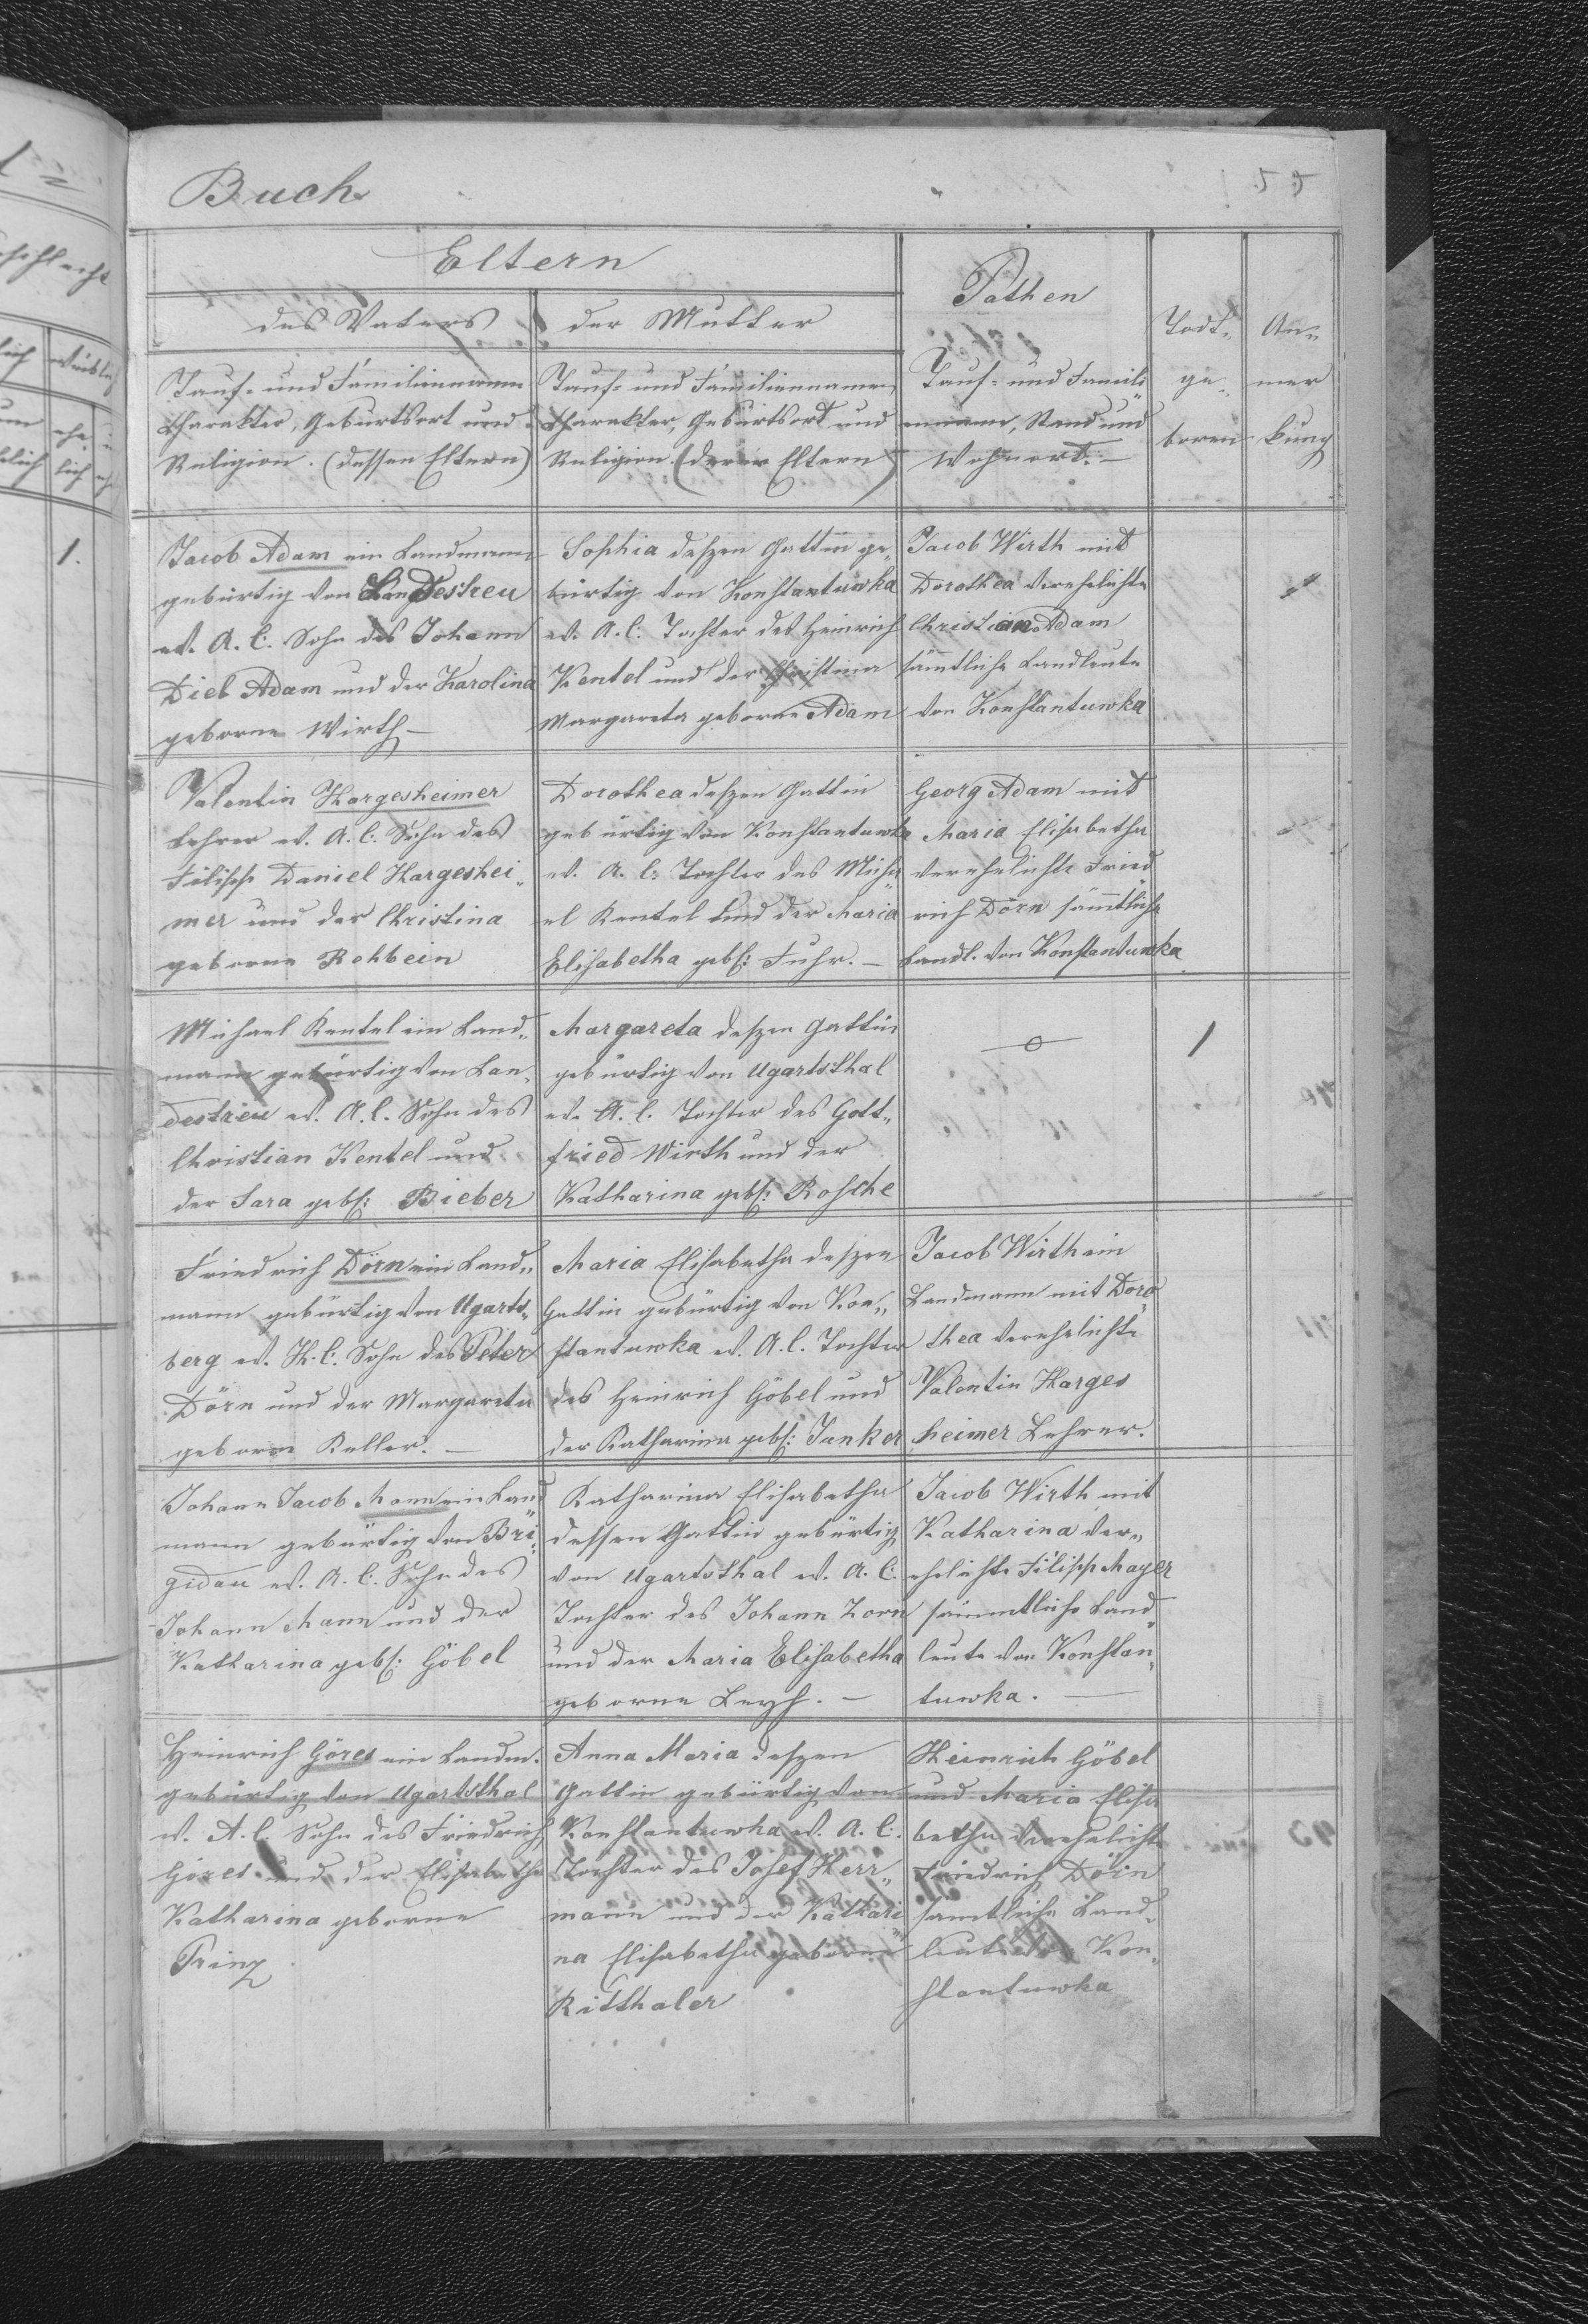 Buch
55
Eltern
Pathen
des Vaters
der Mutter
Todt-
ge-
boren
An-
mer
kung
Tauf- und Familiennamen
Charakter, Geburtsort und
Religion. (dessen Eltern)
Tauf- und Familiennamen
Charakter, Geburtsort und
Religion. (deren Eltern)
Tauf- und Famili„
ennamen, Stand und
Wohnort. —
1.
Jacob Adam ein Landmann
gebürtig von Landestreu
ev. A. C. Sohn des Johann
Dieb Adam und der Karolina
geborne Wirth —
Sophia deszen Gattin ge„
bürtig von Konstantuwka
ev. A. C. Tochter des Heinrich
Kentel und der Christina
Margareta geborne Adam
Jacob Wirth mit
Dorothea verehelichte
Christian Adam
sämtliche Landleute
von Konstantuwka
Valentin Hargesheimer
Lehrer ev. A. C. Sohn des
Filipp Daniel Hargeshei„
mer und der Christina
geborne Rehbein
Dorothea deszen Gattin
gebürtig von Konstantuwka
ev. A. C. Tochter des Micha
el Kentel und der Maria
Elisabetha geb: Fuhr. —
Georg Adam mit
Maria Elisabetha
verehelichte Fried
rich Dörn sämtliche
Landl. von Konstantuwka
Michael Kentel ein Land„
mann gebürtig von Lan„
destreu ev. A. C. Sohn des
Christian Kentel und
der Sara geb: Bieber
Margareta deszen Gattin
gebürtig von Ugartsthal
ev. A. C. Tochter des Gott„
fried Wirth und der
Katharina geb: Rosche
1
Friedrich Dörn ein Land„
mann gebürtig von Ugarts„
berg ev. H. C. Sohn des Peter
Dörn und der Margareta
geborne Keller. —
Maria Elisabetha deszen
Gattin gebürtig von Kon„
stantuwka ev. A. C. Tochter
des Heinrich Göbel und
der Katharina geb: Junker
Jacob Wirth ein
Landmann mit Doro
thea verehelichte
Valentin Harges
heimer Lehrer.
Johann Jacob Mann ein Land
mann gebürtig von Bri„
gidau ev. A. C. Sohn des
Johann Mann und der
Katharina geb: Göbel
Katharina Elisabetha
dessen Gattin gebürtig
von Ugartsthal ev. A. C.
Tochter des Johann Zorn
und der Maria Elisabetha
geborne Leyh. —
Jacob Wirth mit
Katharina ver„
ehelichte Filipp Mayer
sämmtliche Land„
leute von Konstan„
tuwka. —
Heinrich Göres ein Landm.
gebürtig von Ugartsthal
ev. A. C. Sohn des Friedrich
Göres und der Elisabetha
Katharina geborne
Prinz
Anna Maria deszen
Gattin gebürtig von
Konstantuwka ev. A. C.
Tochter des Josef Herr„
mann und der Kathari
na Elisabetha geborne
Ritthaler
Heinrich Göbel
und Maria Elisa
betha verehelichte
Friedrich Dörn
samtliche Land„
leute von Kon„
stantuwka